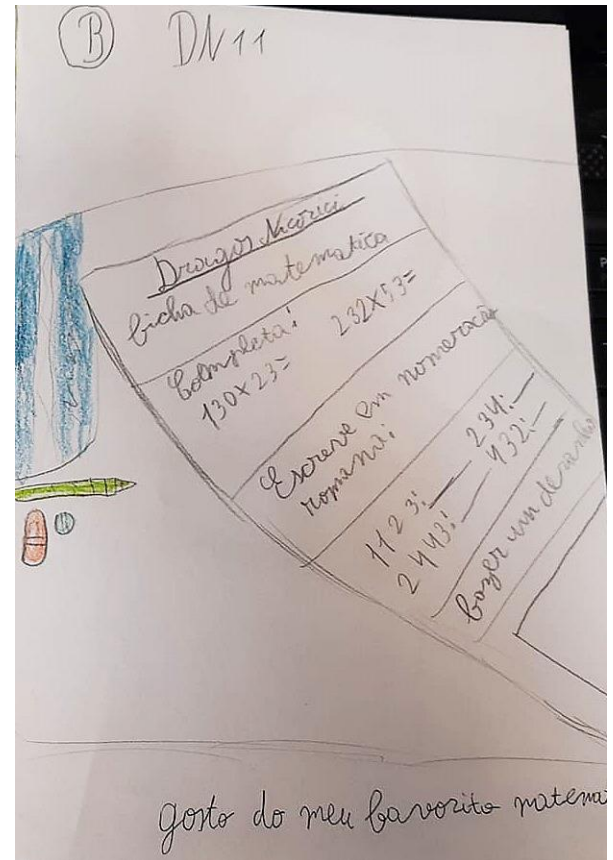 B DN11
Dragos Nicorici
ficha de matematica
Completa:
130x23= 232x53=
Escreve em nomeração
romana:
1123:— 234:—
2443:— 432:—
fazer um desenho
gosto do meu favorito matema